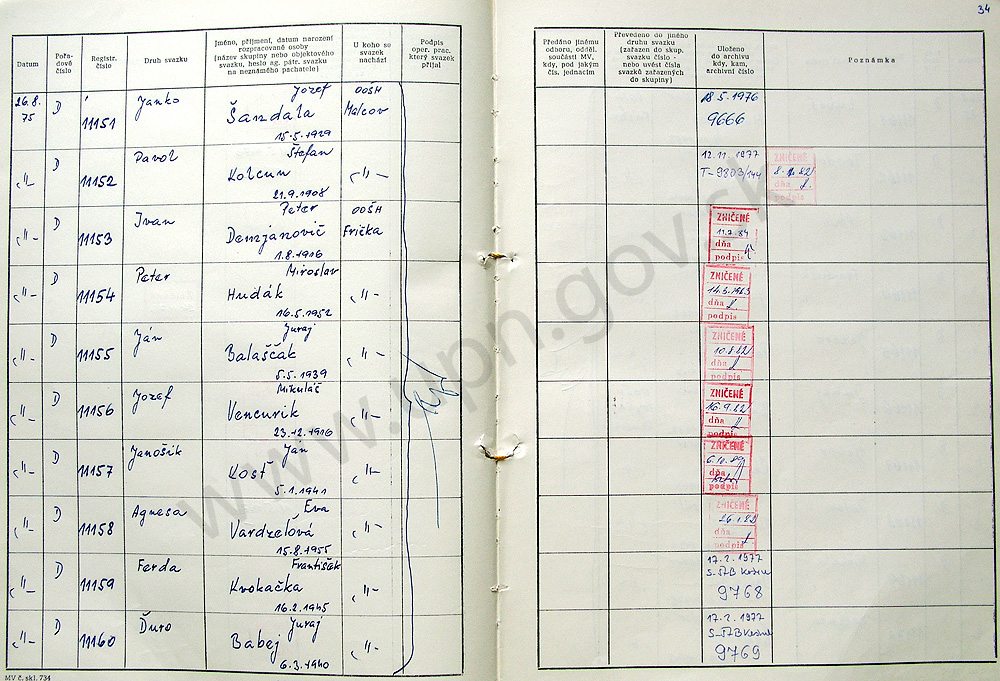 34
Datum
Pořa-
dové
číslo
Registr.
číslo
Druh svazku
Jméno, příjmení, datum narození
rozpracované osoby
(název skupiny nebo objektového
svazku, heslo ag. pátr. svazku
na neznámého pachatele)
U koho se
svazek
nachází
Podpis
oper. prac.
který svazek
přijal
Předáno jinému
odboru, odděl.
součásti MV,
kdy, pod jakým
čís. jednacím
Převedeno do jiného
druhu svazku
(zařazen do skup.
svazku číslo -
nebo uvést čísla
svazků zařazených
do skupiny)
Uloženo
do archivu
kdy, kam,
archivní číslo
Poznámka
26.8.
75
D
11151
Janko
Jozef
Šandala
15.5.1929
OOŠH
Malcov
18.5.1976
9666
-"-
D
11152
Pavol
Štefan
Kolcun
21.9.1908
-"-
12.11.1977
T-9803/144
ZNIČENÉ
dňa
-"-
D
11153
Ivan
Peter
Demjanovič
1.8.1916
OOŠH
Frička
ZNIČENÉ
11.7.84
dňa
podpis
-"-
D
11154
Peter
Miroslav
Hudák
16.5.1952
-"-
ZNIČENÉ
dňa
podpis
-"-
D
11155
Ján
Juraj
Balaščák
5.5.1939
-"-
ZNIČENÉ
10.8.82
dňa
podpis
-"-
D
11156
Jozef
Mikuláš
Vencurik
23.12.1916
-"-
ZNIČENÉ
16.9.82
dňa
podpis
-"-
D
11157
Janošík
Ján
Kosť
5.1.1941
-"-
ZNIČENÉ
6.10.89
dňa
podpis
-"-
D
11158
Agnesa
Eva
Vardzeľová
15.8.1955
-"-
ZNIČENÉ
26.1.82
dňa
podpis
-"-
D
11159
Ferda
František
Kvokačka
16.2.1945
-"-
17.2.1977
S-ŠTB Košice
9768
-"-
D
11160
Ďuro
Juraj
Babej
6.3.1940
-"-
17.2.1977
S-ŠTB Košice
9769
MV č. skl. 734
www.upn.gov.sk